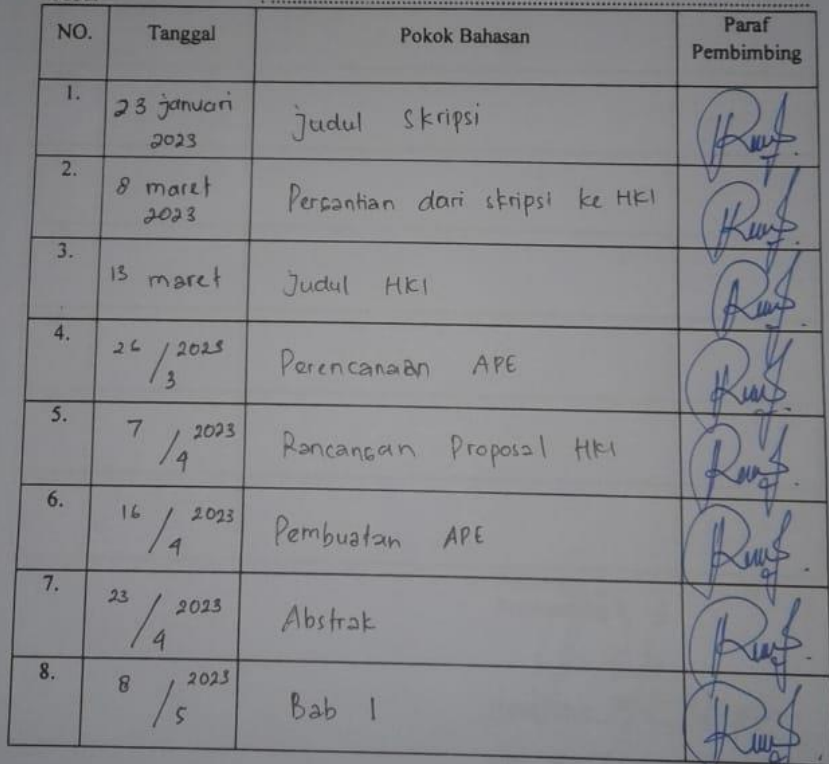 NO. Tanggal Pokok Bahasan Paraf Pembimbing
1. 23 januari 2023 Judul Skripsi
2. 8 maret 2023 Pergantian dari skripsi ke HKI
3. 13 maret Judul HKI
4. 26/3 2023 Perencanaan APE
5. 7/4 2023 Rancangan Proposal HKI
6. 16/4 2023 Pembuatan APE
7. 23/4 2023 Abstrak
8. 8/5 2023 Bab 1